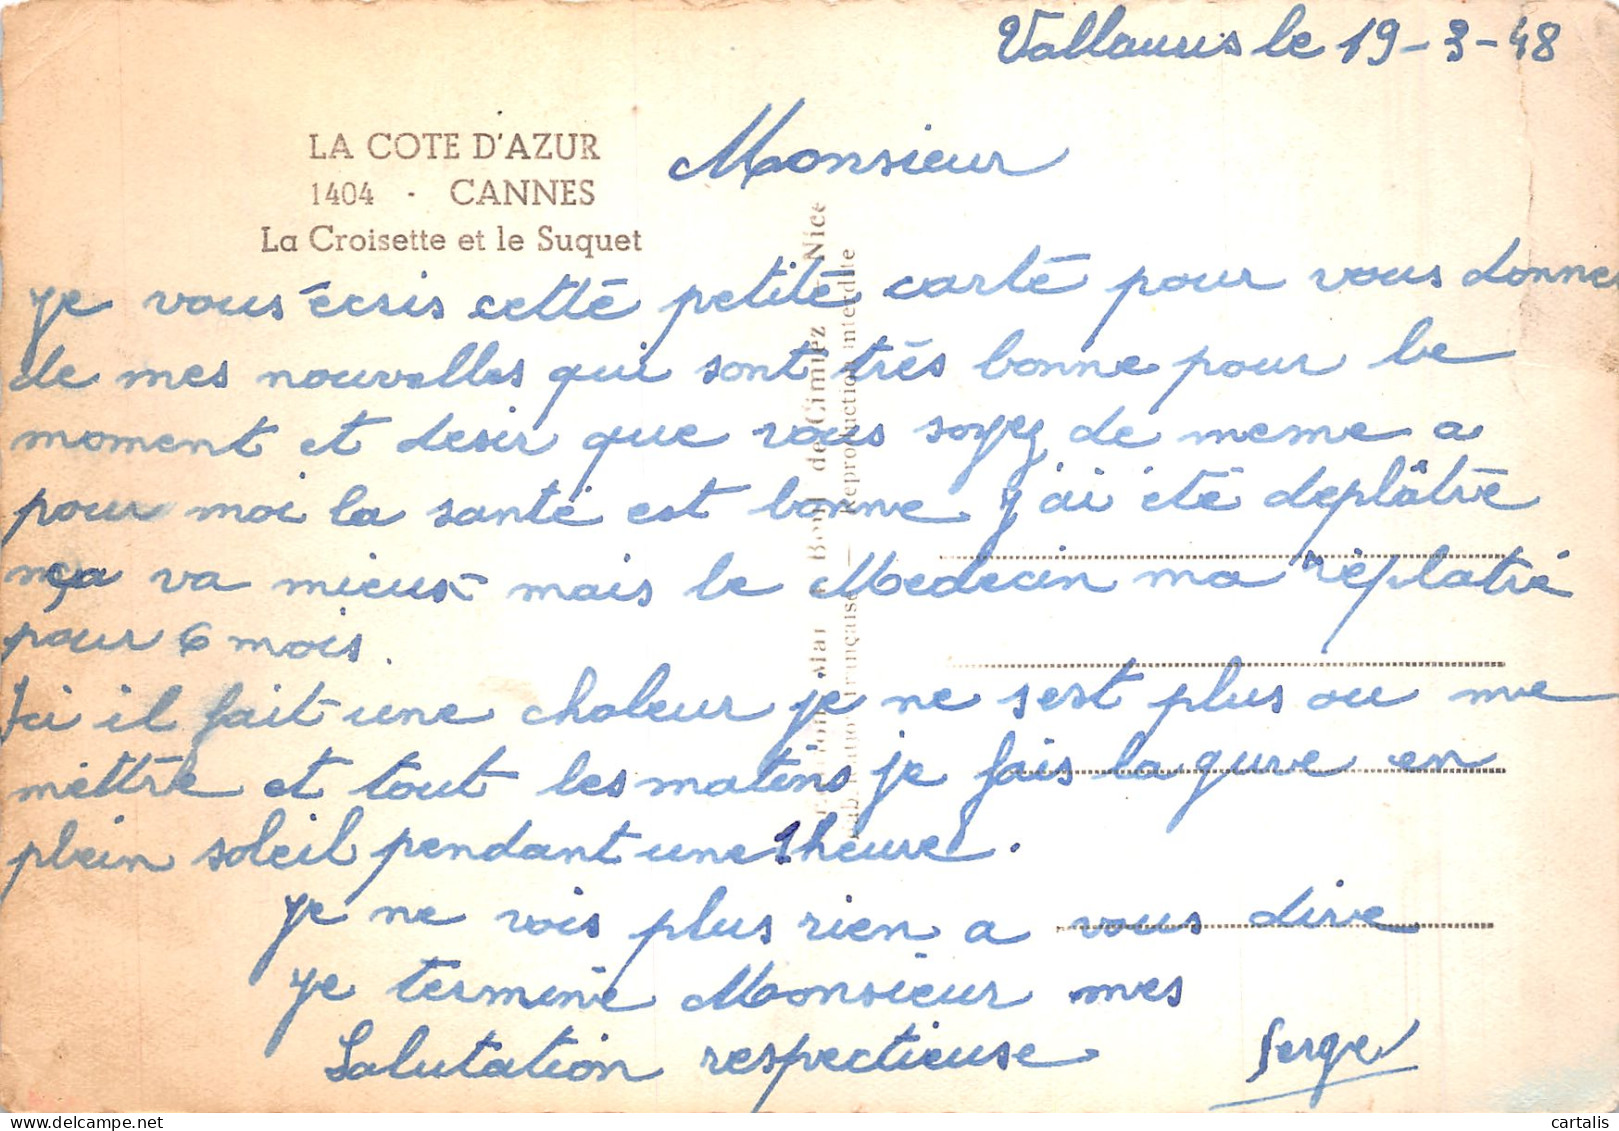 Vallauris le 19-3-48
LA COTE D'AZUR
1404 - CANNES
La Croisette et le Suquet
Monsieur
je vous écris cette petite carte pour vous donner
de mes nouvelles qui sont très bonne pour le
moment et desir que vous soyez de meme a
pour moi la santé est bonne j'ai été deplâtré
ça va mieux mais le Medecin ma replatré
pour 6 mois.
Ici il fait une chaleur je ne sest plus ou me
mettre et tout les matins je fais la gure en
plein soleil pendant une heure.
je ne vois plus rien a vous dire
je termine Monsieur mes
Salutation respectieuse
Serge
de Cimiez - Nice
Reproduction interdite
cartalis